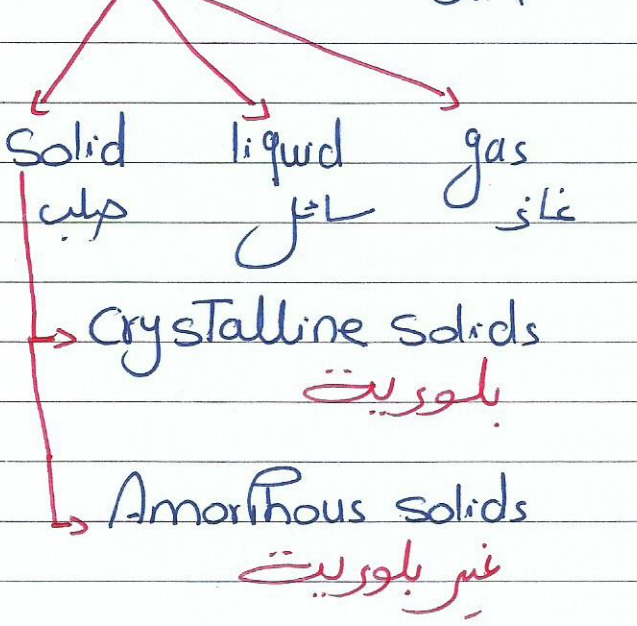 Solid liquid gas
صلب سائل غاز
Crystalline solids
بلورية
Amorphous solids
غير بلورية